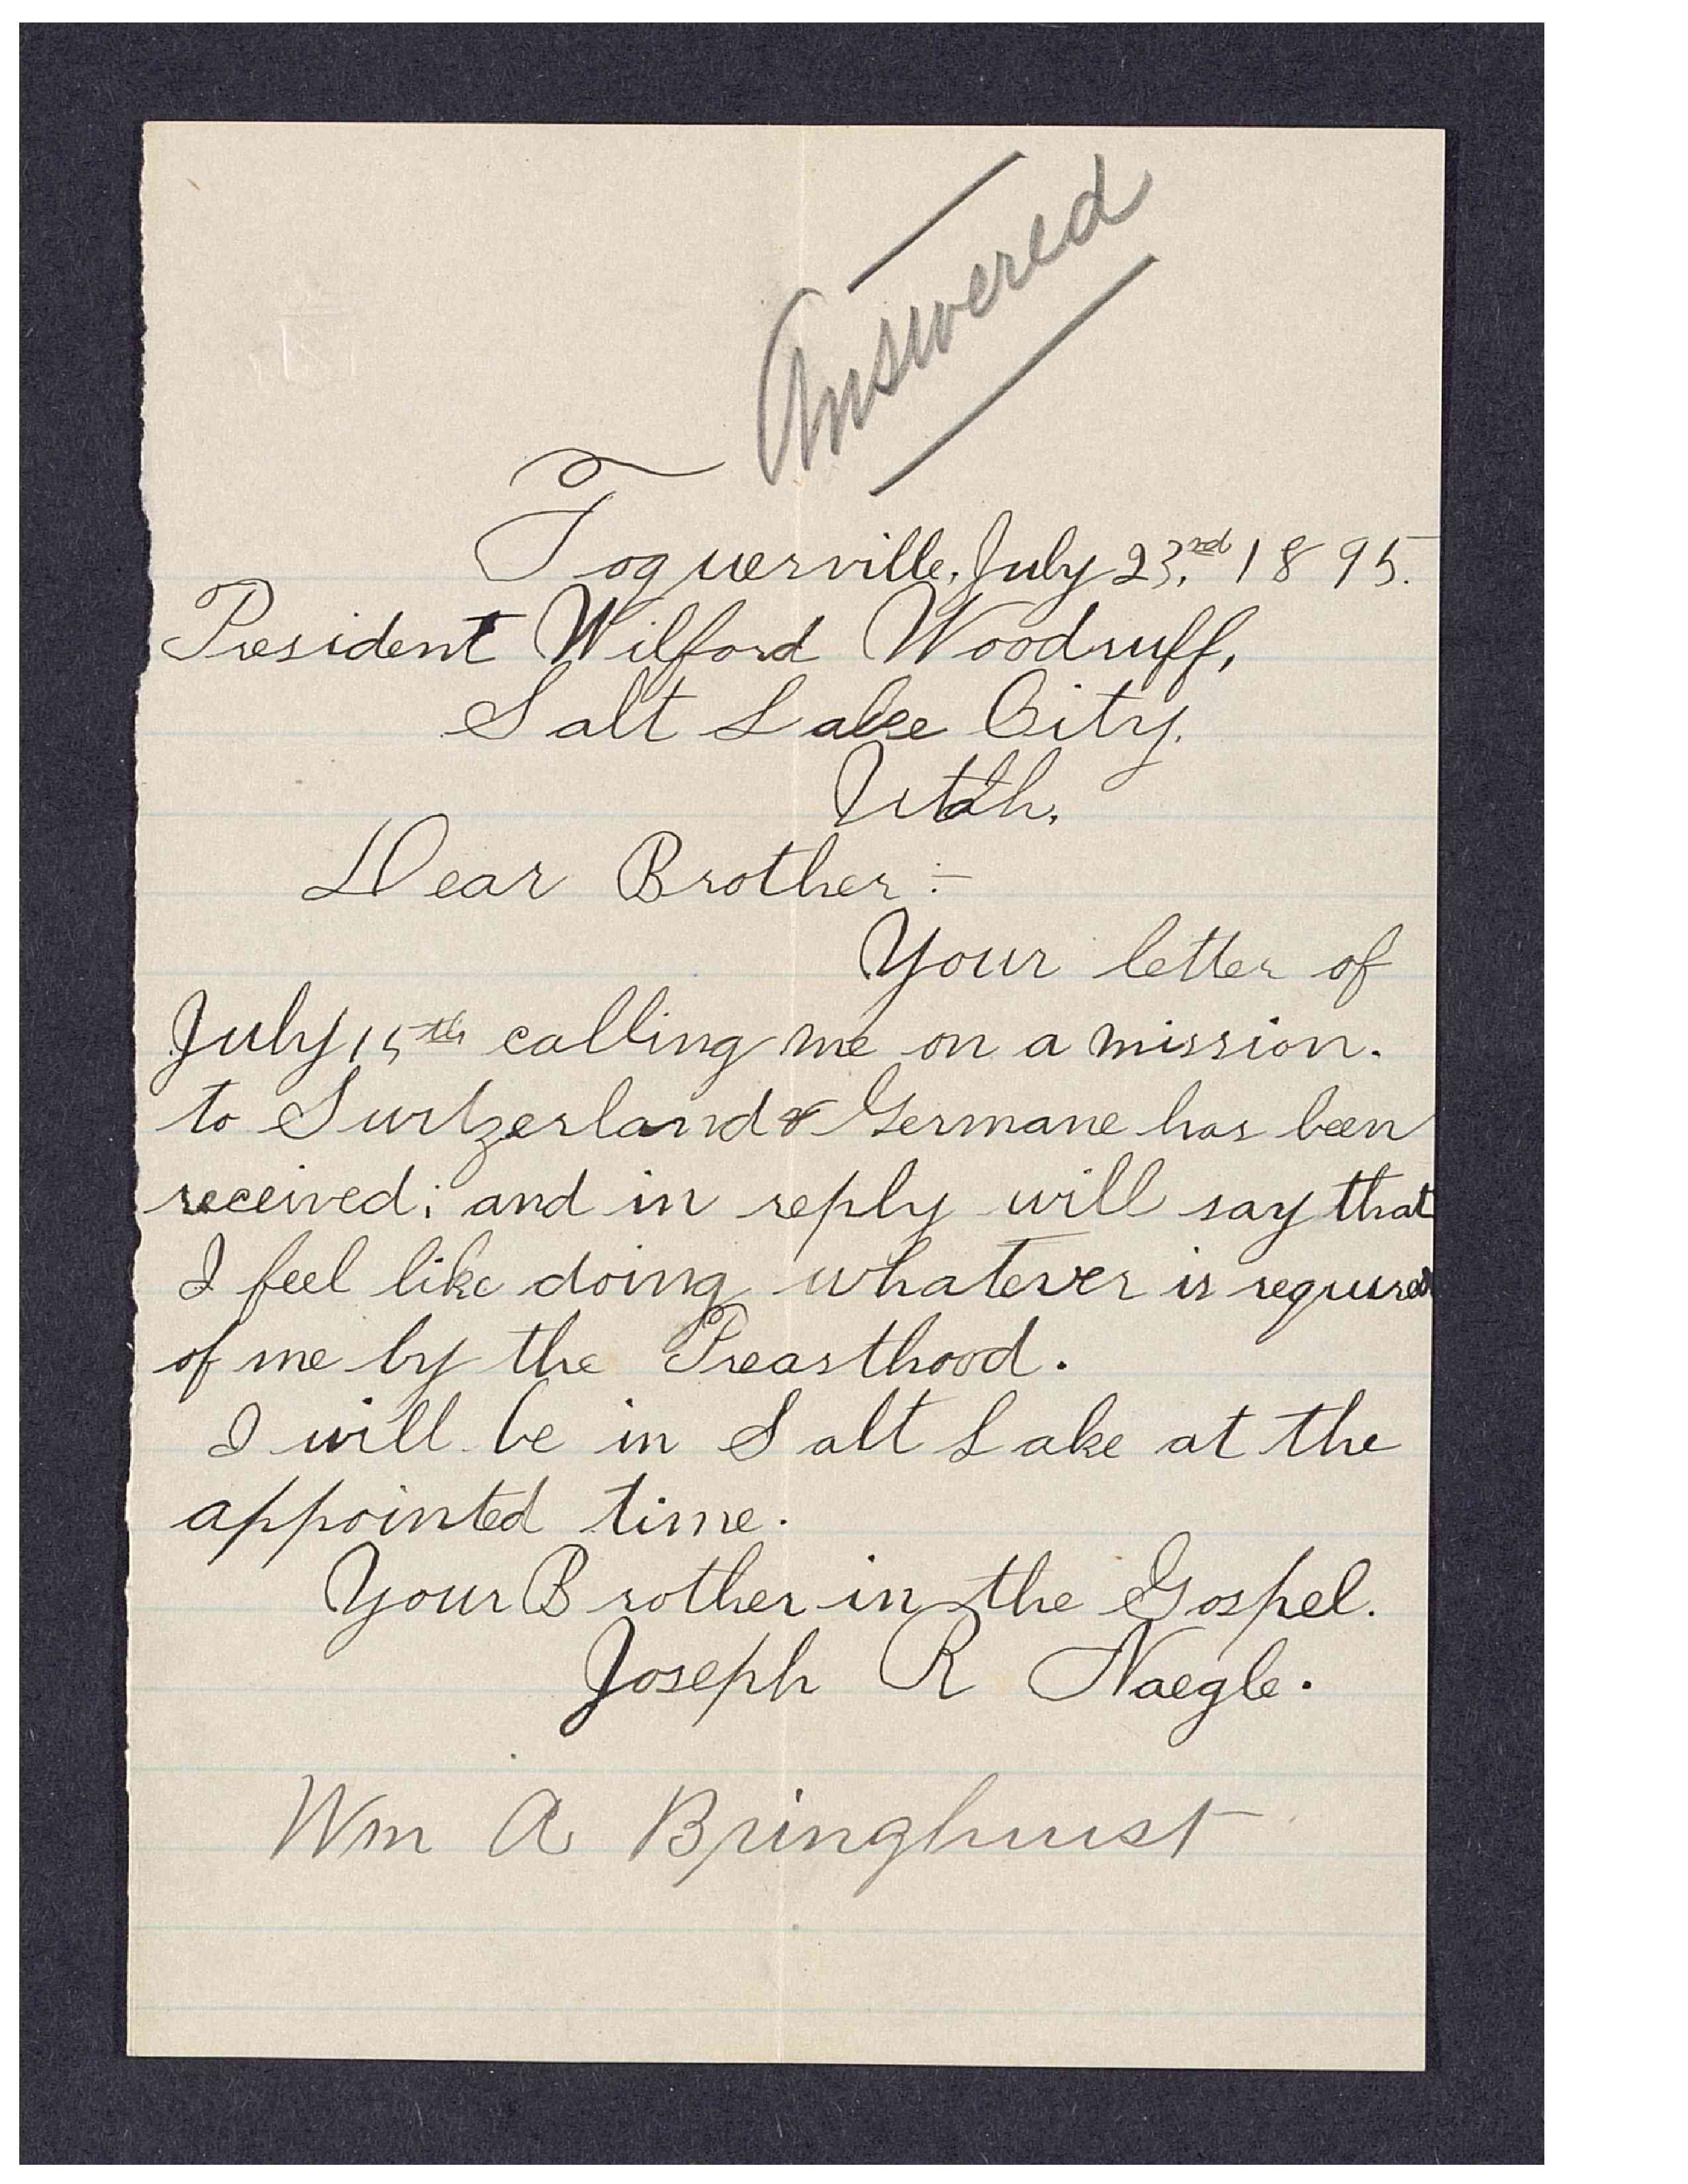 Answered
Toquerville, July 23,nd 1895.
President Wilford Woodruff,
Salt Lake City.
Utah,
Dear Brother:-
Your letter of
July 15th calling me on a mission.
to Switzerland & Germane has been
received; and in reply will say that
I feel like doing whatever is requred
of me by the Preasthood.
I will be in Salt Lake at the
appointed time.
Your Brother in the Gospel.
Joseph R Naegle.
Wm A Bringhurst